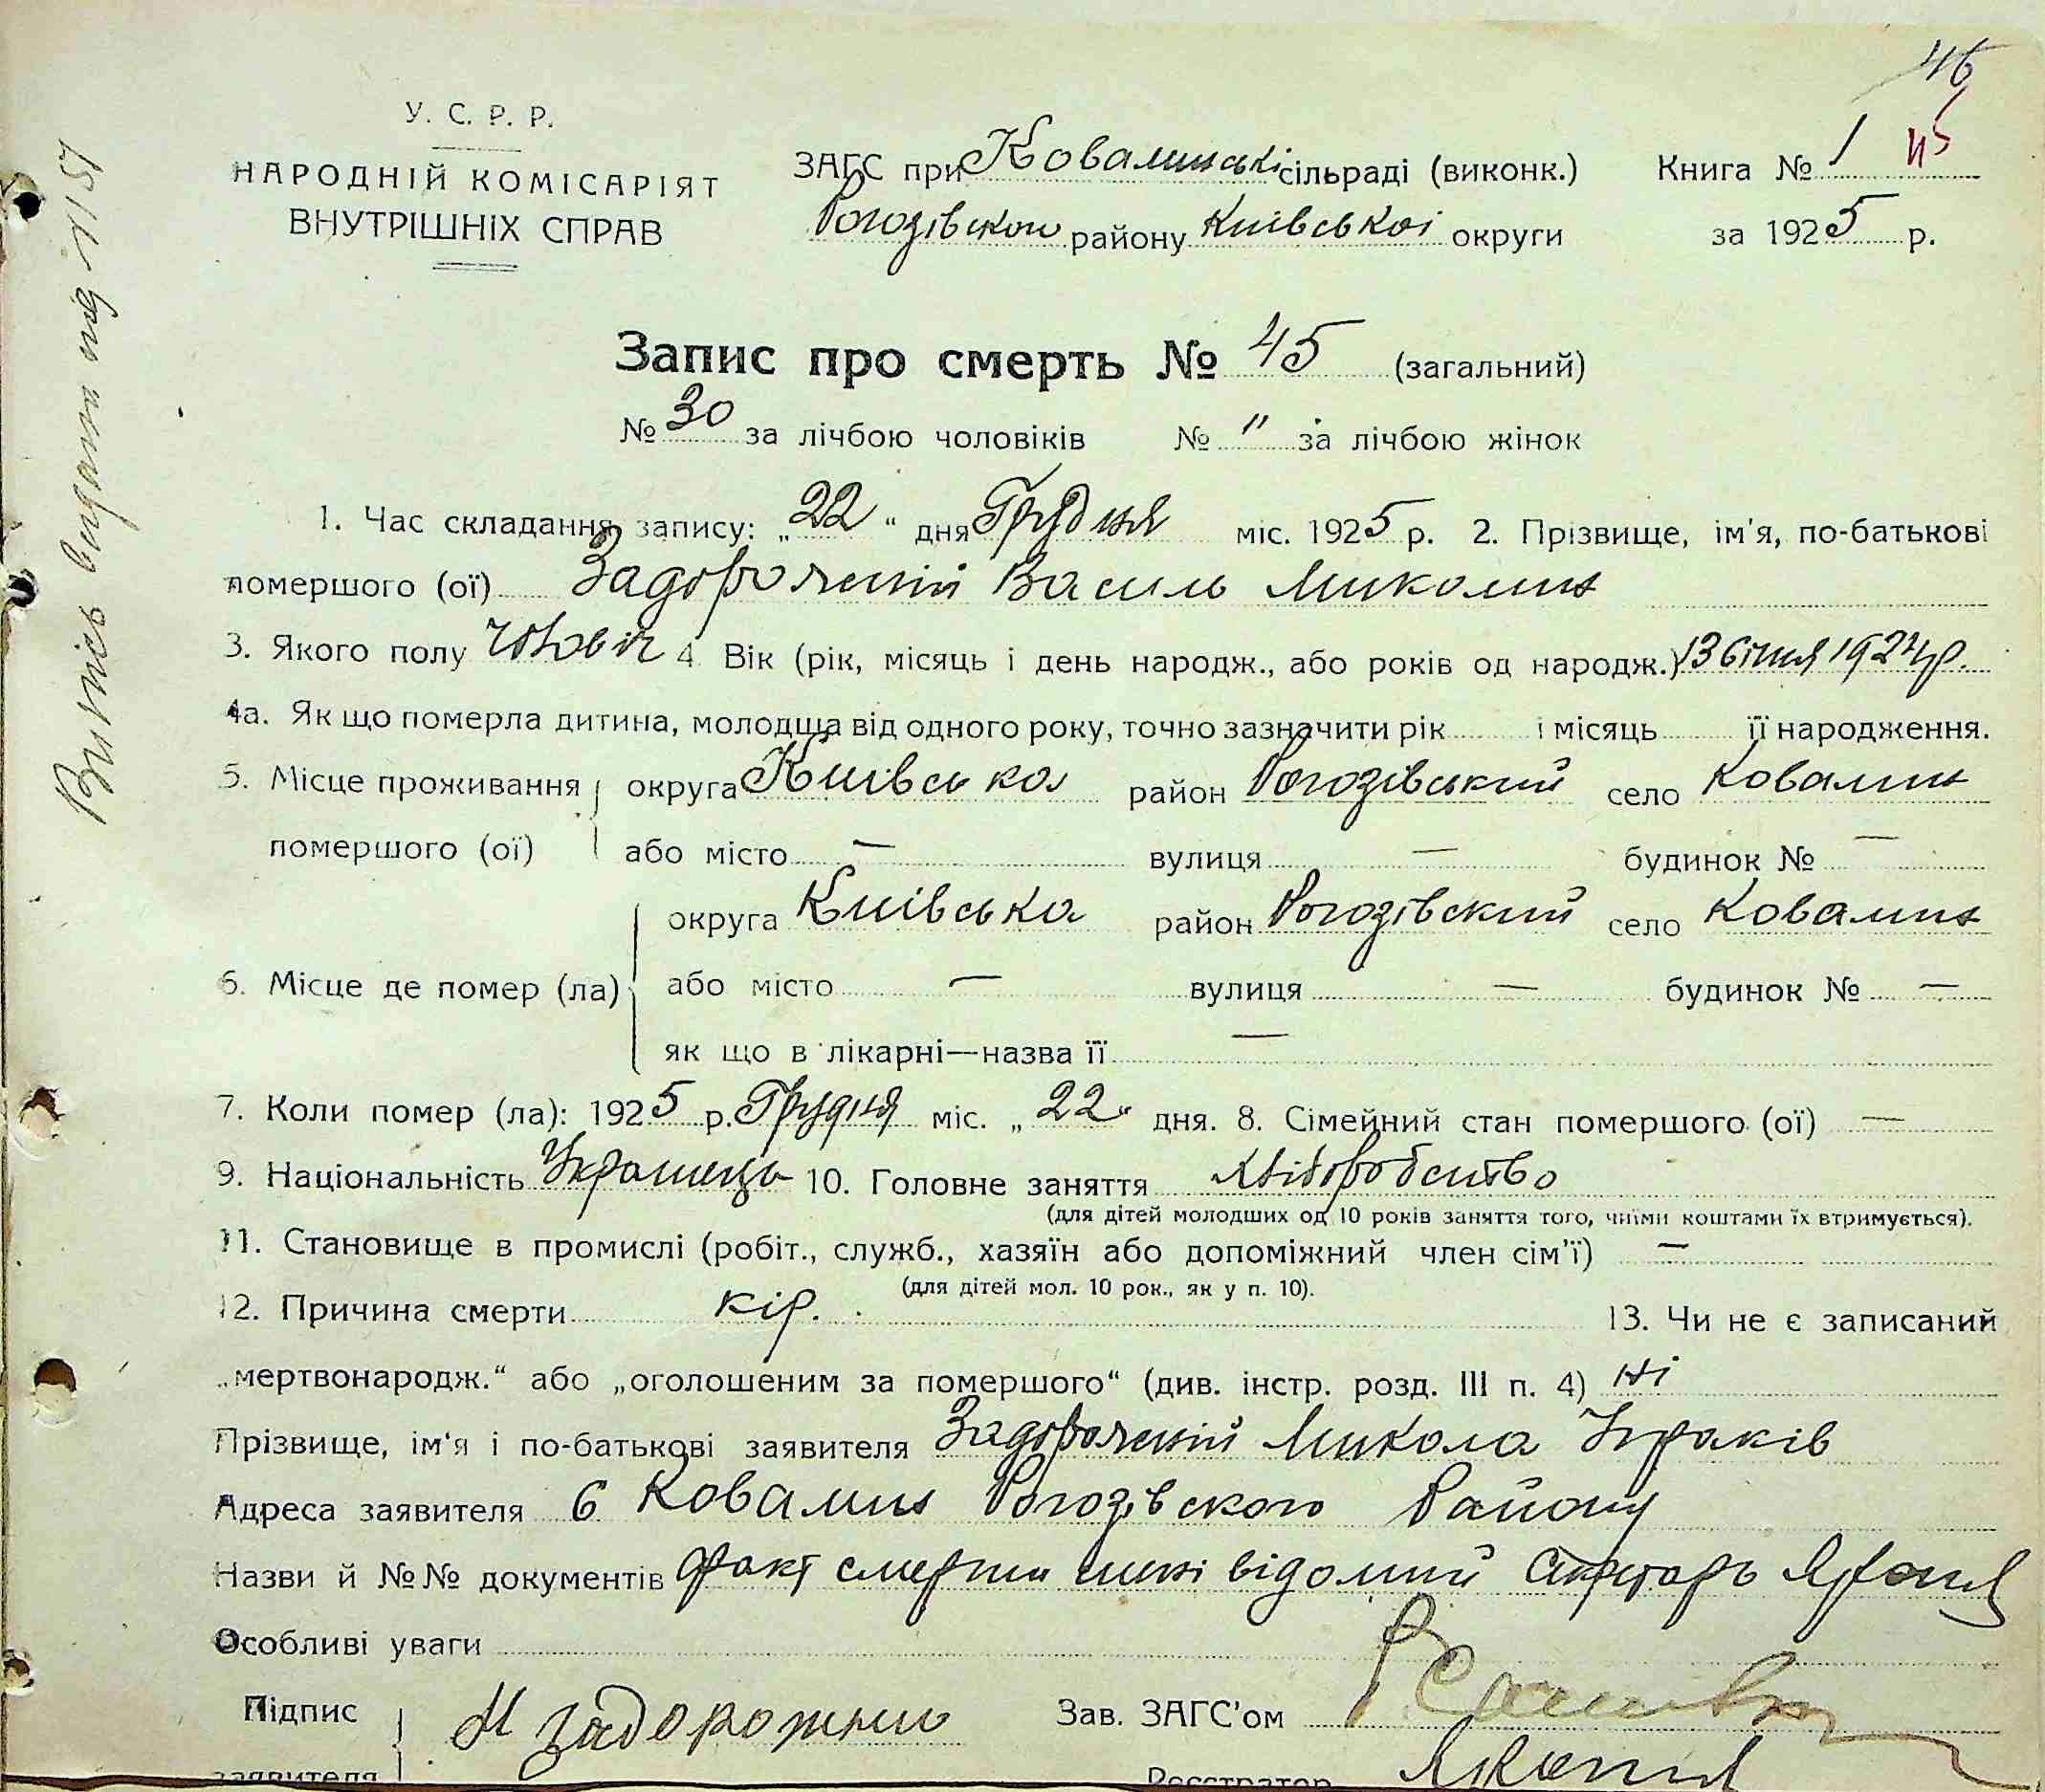 46
45
У. С. Р. Р.
НАРОДНІЙ КОМІСАРІЯТ
ВНУТРІШНІХ СПРАВ
ЗАГС при Ковалинські сільраді (виконк.) Книга № 1
Рогозівском району Київської округи за 1925 р.
Витяг видати під № 151
Запис про смерть № 45 (загальний)
№ 30 за лічбою чоловіків № " за лічбою жінок
1. Час складання запису: „22“ дня Грудня міс. 1925 р. 2. Прізвище, ім'я, по-батькові
помершого (ої) Задорожній Василь Миколин
3. Якого полу чоловіч 4 Вік (рік, місяць і день народж., або років од народж.) 13 січня 1924 р.
4а. Як що померла дитина, молодща від одного року, точно зазначити рік і місяць її народження.
5. Місце проживання округа Київська район Рогозівський село Ковалин
помершого (ої) або місто — вулиця — будинок № —
округа Київська район Рогозівский село Ковалин
6. Місце де помер (ла) або місто — вулиця — будинок № —
як що в лікарні—назва її —
7. Коли помер (ла): 1925 р. Грудня міс. „22“ дня. 8. Сімейний стан помершого (ої) —
9. Національність Українець 10. Головне заняття хліборобство
(для дітей молодших од 10 років заняття того, чиїми коштами їх втримується).
11. Становище в промислі (робіт., служб., хазяїн або допоміжний член сім'ї) —
(для дітей мол. 10 рок., як у п. 10).
12. Причина смерти кір. 13. Чи не є записаний
„мертвонародж.“ або „оголошеним за помершого“ (див. інстр. розд. III п. 4) ні
Прізвище, ім'я і по-батькові заявителя Задорожній Микола
Адреса заявителя с Ковалин Рогозівского Району
Назви й №№ документів факт смерти мені відомий Секретарь
Особливі уваги
Підпис М Задорожни Зав. ЗАГС'ом
заявителя Реєстратор